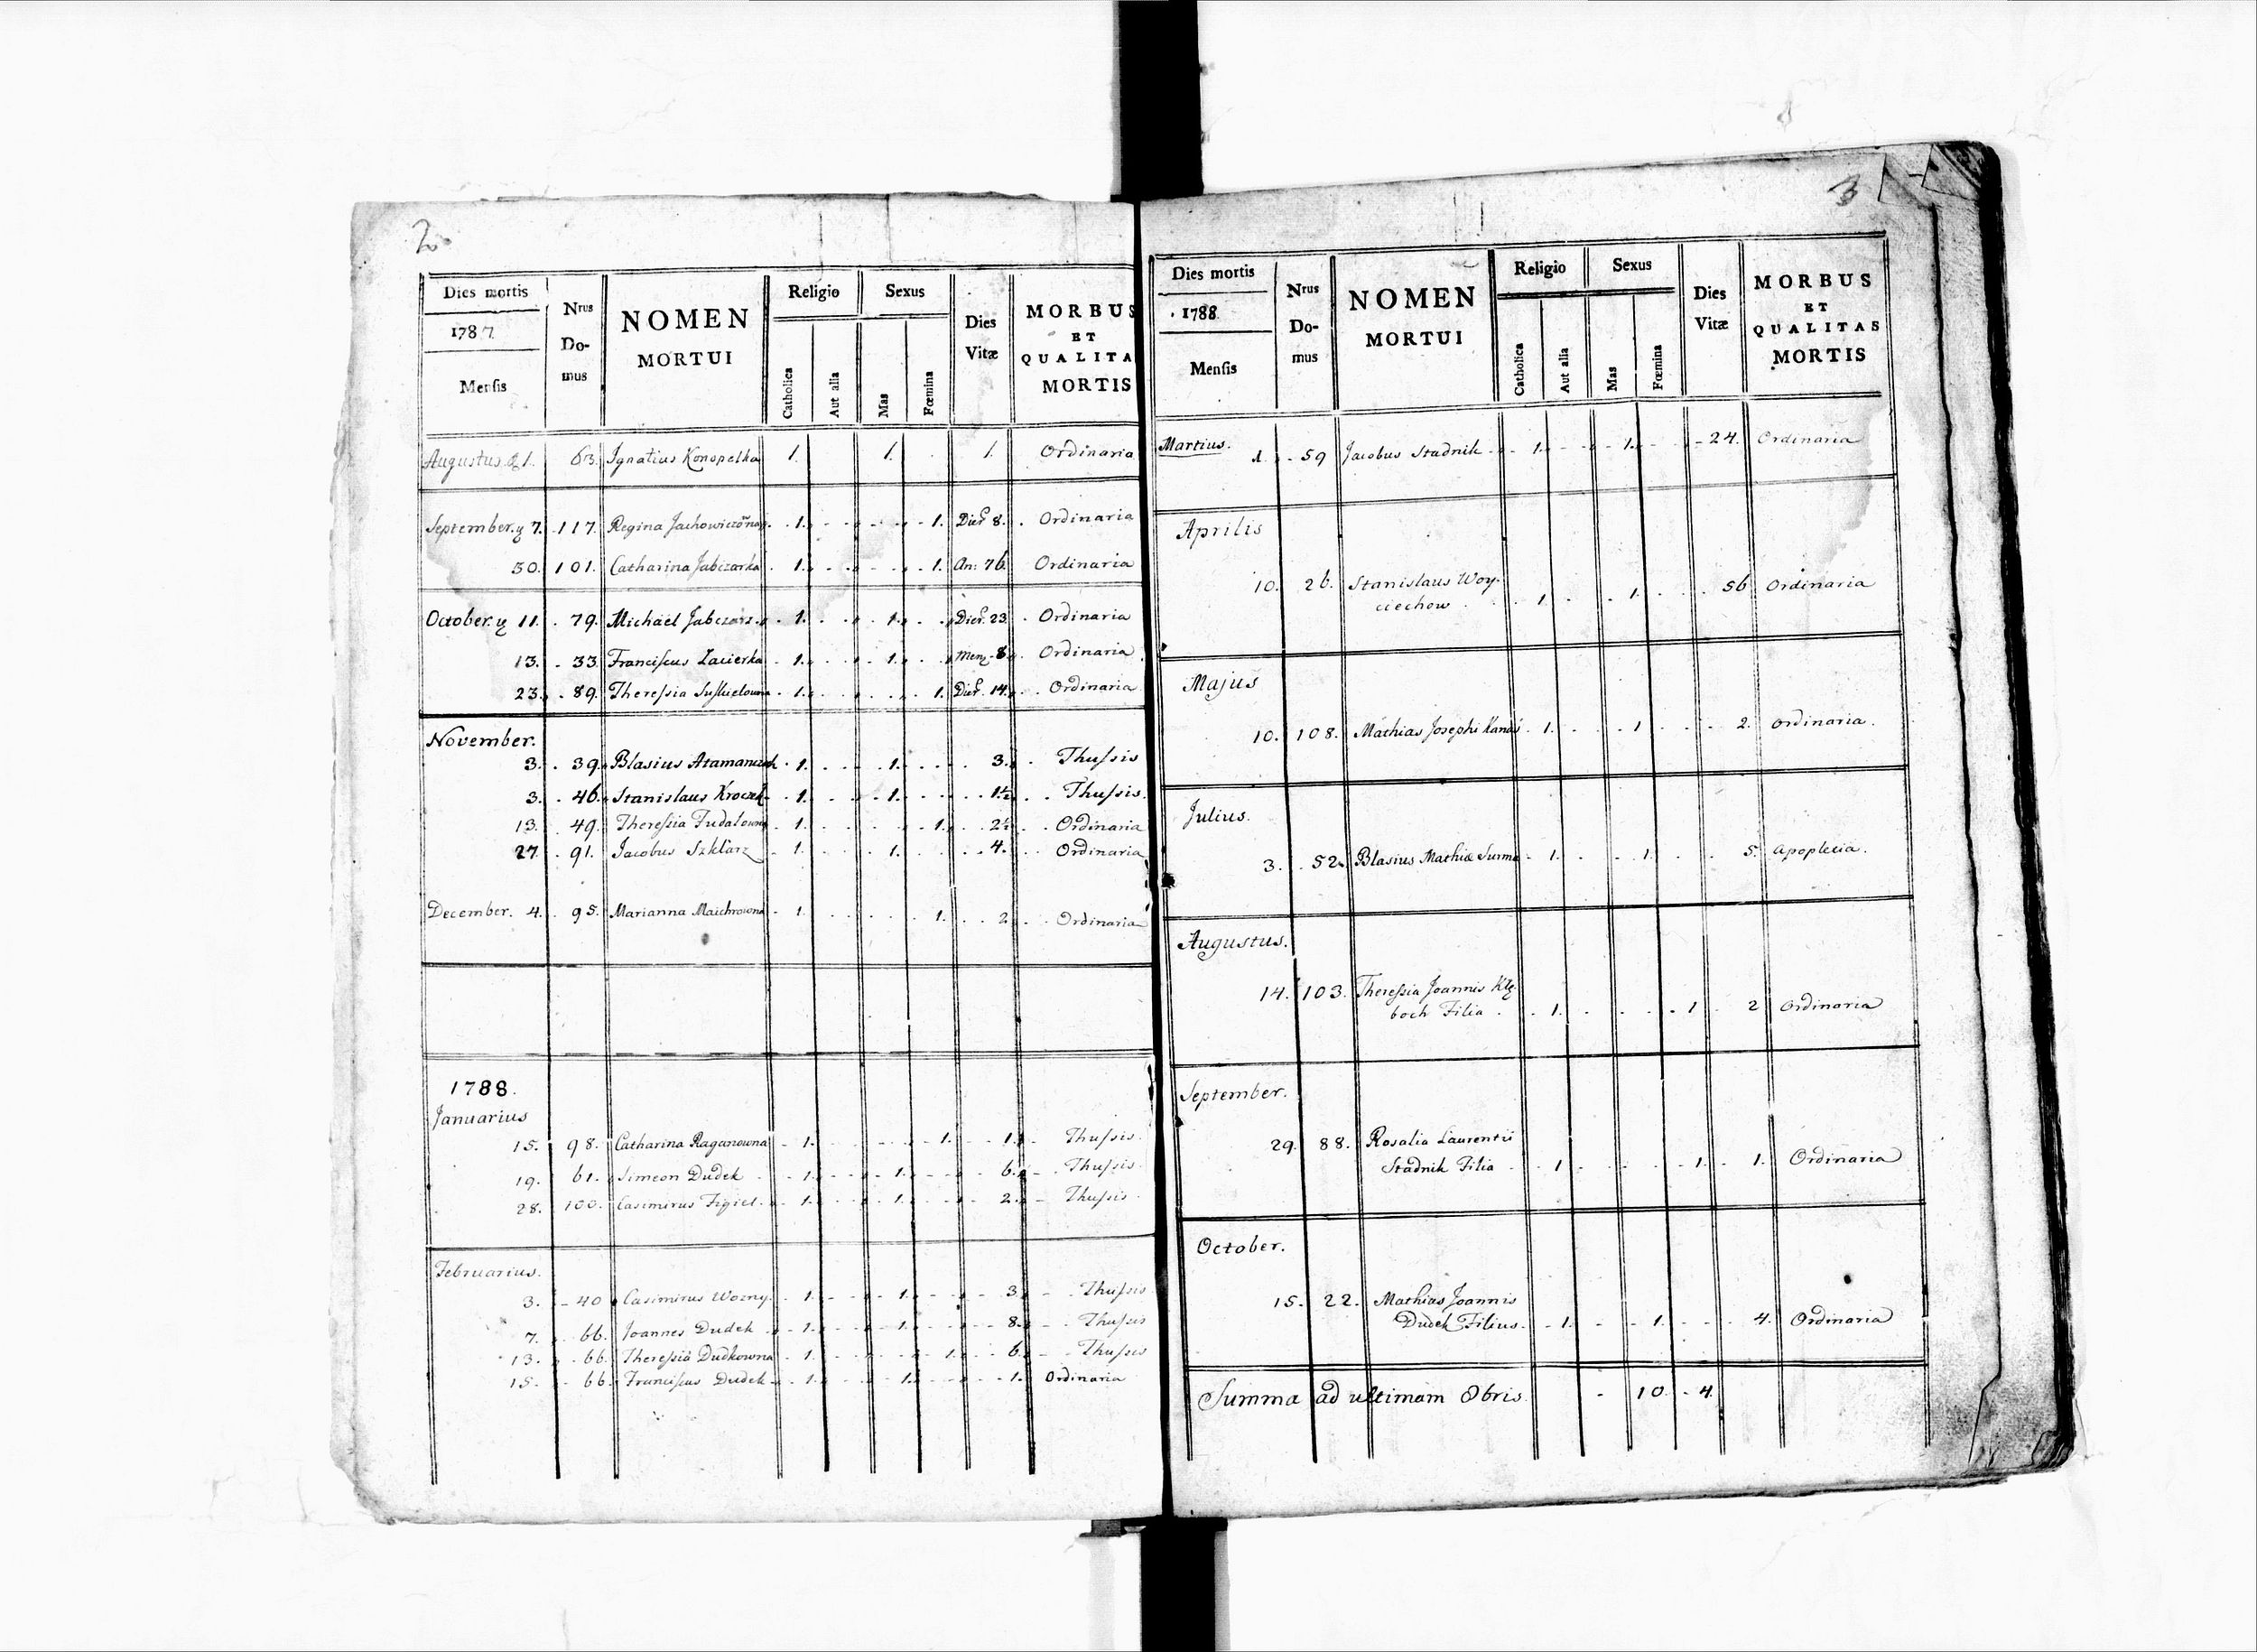 2.
Dies mortis Nrus Do- mus NOMEN MORTUI Religio Sexus Dies Vitæ MORBUS ET QUALITA MORTIS
1787
Mensis Catholica Aut alia Mas Fœmina
Augustus 63. Ignatius Konopelka 1. 1. 1. Ordinaria
September. 7. 117. Regina 1. 1. Dier 8. Ordinaria
30. 101. Catharina Jabczarka 1. 1. An: 76. Ordinaria
October. 11. 79. Michaël 1. 1. Dier. 23. Ordinaria
13. 33. Franciscus Zacierka 1. 1. 8. Ordinaria
23. 89. Theressia 1. 1. Dier. 14. Ordinaria
November.
3. 39. Blasius Atamanczuk 1. 1. 3. Thussis
3. 46. Stanislaus Kroczek 1. 1. 1½ Thussis.
13. 49. Theressia Fudalowna 1. 1. 2½ Ordinaria
27. 91. Jacobus Szklarz 1. 1. 4. Ordinaria
December. 4. 95. Marianna Maichrowna 1. 1. 2. Ordinaria
1788.
Januarius
15. 98. Catharina Raganowna 1. 1. 1. Thussis.
19. 61. Simeon Dudek 1. 1. 6. Thussis.
28. 100. Casimirus Figiel. 1. 1. 2. Thussis.
Februarius.
3. 40 Casimirus Wozny. 1. 1. 3. Thussis
7. 66. Joannes Dudek 1. 1. 8. Thussis
13. 66. Theressia Dudkowna 1. 1. 6. Thussis
15. 66. Franciscus Dudek 1. 1. 1. Ordinaria
3
Dies mortis Nrus Do- mus NOMEN MORTUI Religio Sexus Dies Vitæ MORBUS ET QUALITAS MORTIS
1788
Mensis Catholica Aut alia Mas Fœmina
Martius.
1. 59 Jacobus Stadnik 1. 1. 24. Ordinaria
Aprilis
10. 26. Stanislaus Woy-
ciechow 1. 1. 56 Ordinaria
Majus
10. 108. Mathias Josephi Kanas 1. 1 2. Ordinaria.
Julius.
3. 52. Blasius Mathiæ Surma 1. 1. 5. Apoplecia.
Augustus.
14. 103. Theressia Joannis Klę-
boch Filia 1. 1 2 Ordinaria
September.
29. 88. Rosalia Laurentii
Stadnik Filia 1. 1. 1. Ordinaria
October.
15. 22. Mathias Joannis
Dudek Filius. 1. 1. 4. Ordinaria
Summa ad ultimam 8bris 10 4.